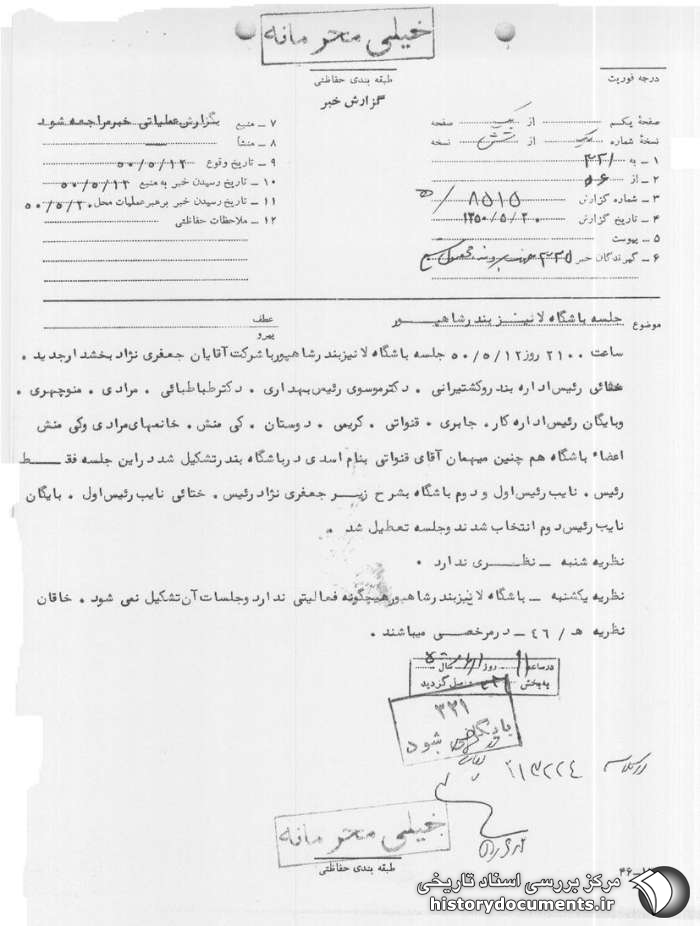 خیلی محرمانه
طبقه بندی حفاظتی
گزارش خبر
درجه فوریت
صفحهٔ یکم از یک صفحه
نسخهٔ شماره یک از شش نسخه
۱ ـ به ۳۳۱
۲ ـ از ۵۶
۳ ـ شماره گزارش ۸۵۱۵ / ۵
۴ ـ تاریخ گزارش ۱۳۵۰/۵/۲۰
۵ ـ پیوست
۶ ـ گیرندگان خبر
۷ ـ منبع بگزارش عملیاتی خبر مراجعه شود
۸ ـ منشأ
۹ ـ تاریخ وقوع ۵۰/۵/۱۲
۱۰ ـ تاریخ رسیدن خبر به منبع ۵۰/۵/۱۲
۱۱ ـ تاریخ رسیدن خبر برهبر عملیات محل ۵۰/۵/۲۰
۱۲ ـ ملاحظات حفاظتی
موضوع جلسه باشگاه لاینیز بندر شاهپور
عطف
پیرو
ساعت ۲۱۰۰ روز ۵۰/۵/۱۲ جلسه باشگاه لاینیز بندر شاهپور با شرکت آقایان جعفری نژاد بخشدار جدید .
ختائی رئیس اداره بندر و کشتیرانی . دکتر موسوی رئیس بهداری . دکتر طباطبائی . مرادی . منوچهری .
و بایگان رئیس اداره کار . جابری . قنواتی . کریمی . دوستان . کی منش . خانمهای مرادی و کی منش
اعضاء باشگاه هم چنین میهمان آقای قنواتی بنام اسدی در باشگاه بندر تشکیل شد در این جلسه فقط
رئیس . نایب رئیس اول و دوم باشگاه بشرح زیر جعفری نژاد رئیس . ختائی نایب رئیس اول . بایگان
نایب رئیس دوم انتخاب شدند و جلسه تعطیل شد .
نظریه شنبه ـ نظری ندارد .
نظریه یکشنبه ـ باشگاه لاینیز بندر شاهپور هیچگونه فعالیتی ندارد و جلسات آن تشکیل نمی شود . خاقان
نظریه هـ / ۴۶ ـ در مرخصی میباشند .
در ساعت ۱۱ روز سال
به بخش ۳۳۱ واصل گردید
۳۳۱
بایگانی شود
۲۱۳۲۲۴
خیلی محرمانه
طبقه بندی حفاظتی
مرکز بررسی اسناد تاریخی
historydocuments.ir